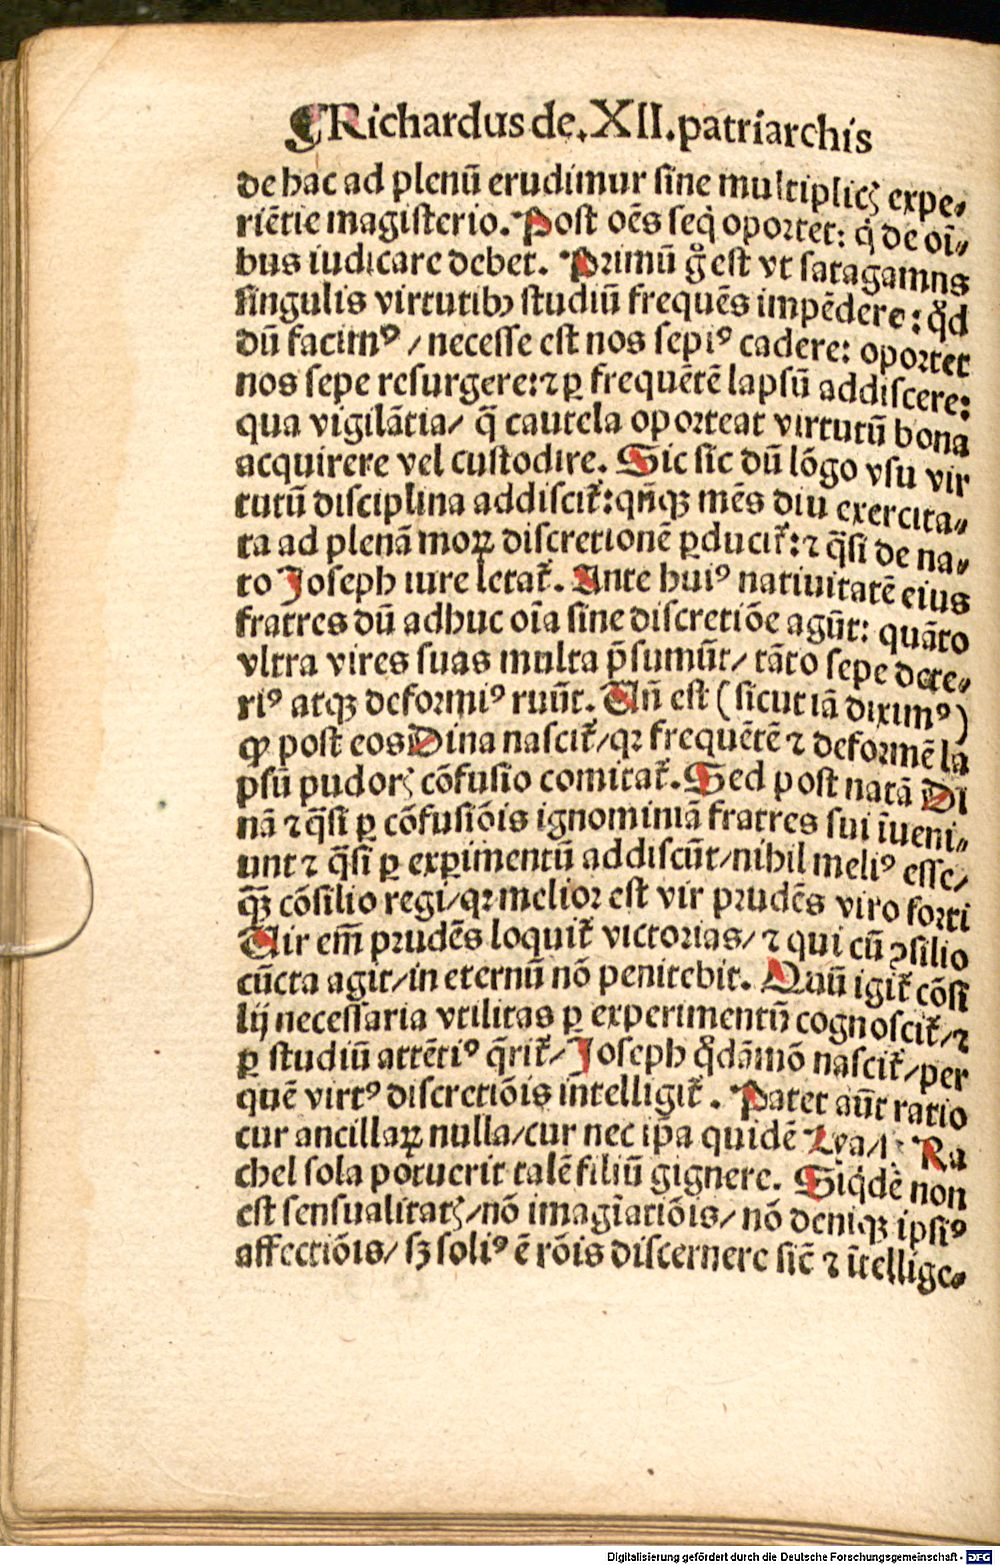 ⸿Richardus de. XII. patriarchis
de hac ad plenũ erudimur ſine multiplicꝭ expe⸗
riẽtie magiſterio. Poſt oẽs ſeq̇ oportet: q̇ de oĩ⸗
bus iudicare debet. Primũ g̊ eſt vt ſatagamns
ſingulis virtutibꝫ ſtudiũ frequẽs impẽdere: qd̓
dũ facimꝰ / neceſſe eſt nos ſepiꝰ cadere: oportet
nos ſepe reſurgere: ⁊ ꝑ frequẽtẽ lapſũ addiſcere:
qua vigilãtia / q̃ cautela oporteat virtutũ bona
acquirere vel cuſtodire. Sic ſic dũ lõgo vſu vir
tutũ diſciplina addiſcit̃: qñqꝫ mẽs diu exercita⸗
ta ad plenã moꝝ diſcretionẽ ꝑducit̃: ⁊ q̃ſi de na⸗
to Joſeph iure letat̃. Ante huiꝰ natiuitatẽ eius
fratres dũ adhuc oĩa ſine diſcretiõe agũt: quãto
vltra vires ſuas multa p̃ſumũt / tãto ſepe dete⸗
riꝰ atqꝫ deformiꝰ ruũt. Uñ eſt (ſicut iã diximꝰ)
ꝙ poſt eos Dina naſcit̃ / qꝛ frequẽtẽ ⁊ deformẽ la
pſũ pudorꝭ cõfuſio comitat̃. Sed poſt natã Di
nã ⁊ q̃ſi ꝑ cõfuſiõis ignominiã fratres ſui ĩueni⸗
unt ⁊ q̃ſi ꝑ exꝑimentũ addiſcũt / nihil meliꝰ eſſe /
q̃ꝫ cõſilio regi / qꝛ melior eſt vir prudẽs viro forti
Uir em̃ prudẽs loquit̃ victorias / ⁊ qui cũ ꝯſilio
cũcta agit / in eternũ nõ penitebit. Quũ igit̃ cõſi
lij neceſſaria vtilitas ꝑ experimentũ cognoſcit̃ / ⁊
ꝑ ſtudiũ attẽtiꝰ q̃rit̃ / Joſeph qd̓ãmõ naſcit̃ / per
quẽ virtꝰ diſcretiõis intelligit̃. Patet aũt ratio
cur ancillaꝝ nulla / cur nec ip̃a quidẽ Lya / ſꝫ Ra
chel ſola potuerit talẽ filiũ gignere. Siq̇dẽ non
eſt ſenſualitatꝭ / nõ imagĩatiõis / nõ deniqꝫ ipſiꝰ
affectiõis / ſꝫ ſoliꝰ ẽ rõis diſcernere ſic̃ ⁊ ĩtellige⸗
Digitalisierung gefördert durch die Deutsche Forschungsgemeinschaft - DFG